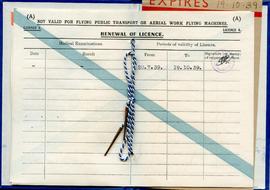 EXPIRES 19-10-39
(A) (A)
NOT VALID FOR FLYING PUBLIC TRANSPORT OR AERIAL WORK FLYING MACHINES.
LICENCE A. LICENCE A.
RENEWAL OF LICENCE.
Medical Examinations. Periods of validity of Licence.
Date Result From To
20.7.39. 19.10.39.